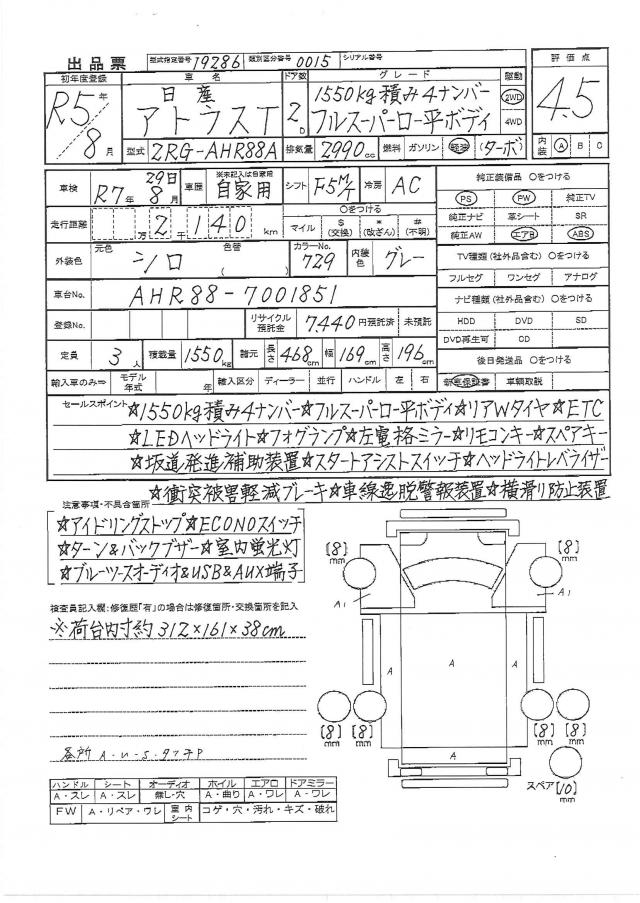 出品票 型式指定番号 19286 類別区分番号 0015 シリアル番号
初年度登録 車名 ドア数 グレード 駆動 評価点
R5年 8月 日産 アトラスT 2D 1550kg積み4ナンバー フルスーパーロー平ボディ 2WD 4WD 4.5
型式 2RG-AHR88A 排気量 2990cc 燃料 ガソリン 軽油 (ターボ) 内装 A B C
車検 R7年 8月 29日 車歴 ※未記入は自家用 自家用 シフト F5M/T 冷房 AC 純正装備品 〇をつける
PS PW 純正TV
走行距離 万 2千 140 km 〇をつける マイル $(交換) *(改ざん) #(不明) 純正ナビ 革シート SR
純正AW エアB ABS
外装色 元色 シロ 色替 ( ) カラーNo. 729 内装色 グレー TV種類(社外品含む) 〇をつける
フルセグ ワンセグ アナログ
車台No. AHR88-7001851 ナビ種類(社外品含む) 〇をつける
登録No. リサイクル預託金 7,440円預託済 未預託 HDD DVD SD
DVD再生可 CD
定員 3人 積載量 1550kg 諸元 長さ 468cm 幅 169cm 高さ 196cm 後日発送品 〇をつける
輸入車のみ⇒ モデル年式 年 輸入区分 ディーラー 並行 ハンドル 左 右 新車保証書 車輌取説
セールスポイント ☆1550kg積み4ナンバー☆フルスーパーロー平ボディ☆リアWタイヤ☆ETC
☆LEDヘッドライト☆フォグランプ☆左電格ミラー☆リモコンキー☆スペアキー
☆坂道発進補助装置☆スタートアシストスイッチ☆ヘッドライトレベライザー
☆衝突被害軽減ブレーキ☆車線逸脱警報装置☆横滑り防止装置
注意事項・不具合箇所
☆アイドリングストップ☆ECONOスイッチ
☆ターン&バックブザー☆室内蛍光灯
☆ブルーツースオーディオ&USB&AUX端子
検査員記入欄:修復歴「有」の場合は修復箇所・交換箇所を記入
※荷台内寸約312×161×38cm
各所 A・U・S・
[8] mm [8] mm
A1 A1
A A A
[8] mm [8] mm [8] mm [8] mm
A
スペア [10] mm
ハンドル シート オーディオ ホイル エアロ ドアミラー
A・スレ A・スレ 無し・穴 A・曲り A・ワレ A・ワレ
FW A・リペア・ワレ 室内シート コゲ・穴・汚れ・キズ・破れ